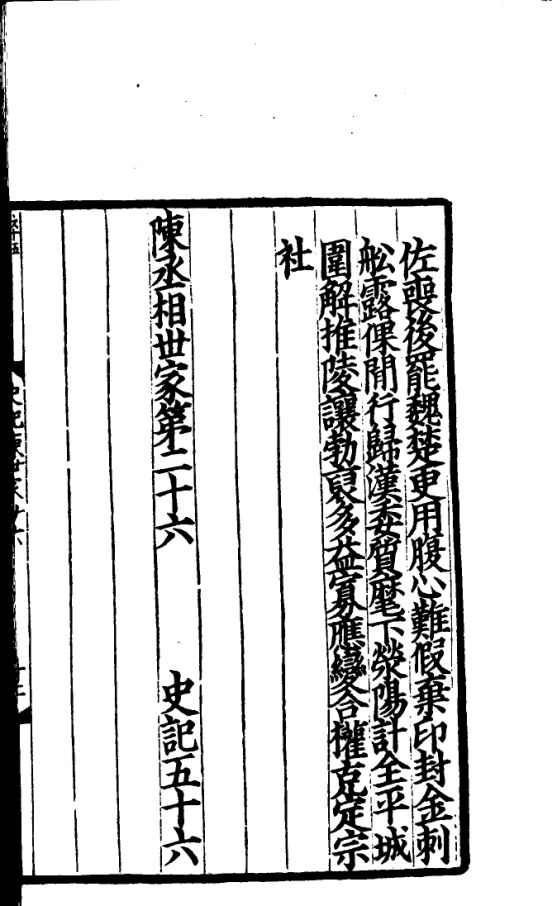 佐喪後罷魏楚更用腹心難假棄印封金刺
舩露倮閒行歸漢委質麾下滎陽計全平城
圍解推陵讓勃裒多益寡應變合權克定宗
社
陳丞相世家第二十六　史記五十六